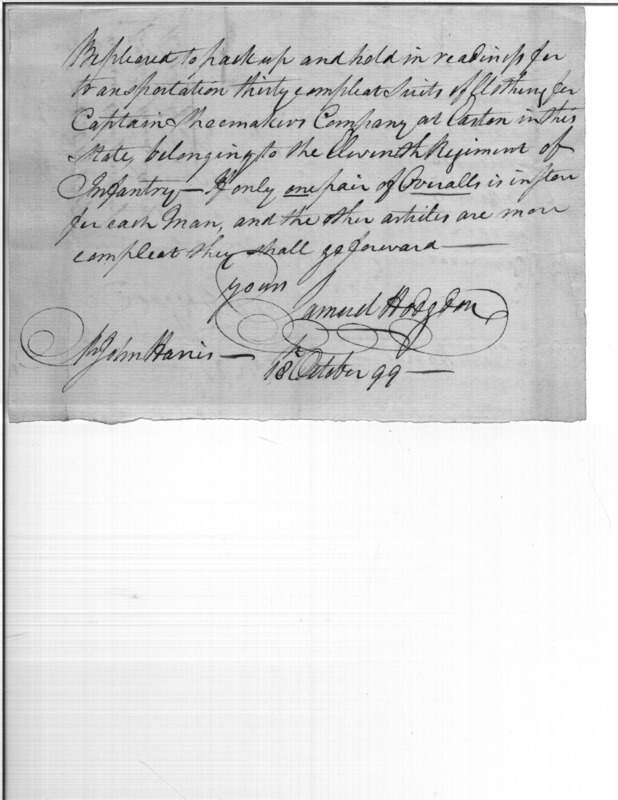 Be pleased to pack up and hold in readiness for
transportation thirty compleat Suits of Clothing for
Captain Shoemakers Company at Easton in this
State, belonging to the Eleventh Regiment of
Infantry — If only one pair of Overalls is in store
for each Man, and the other articles are more
compleat they shall go forward —
yours
Samuel Hodgdon
Mr John Harris —
18th October 99 —